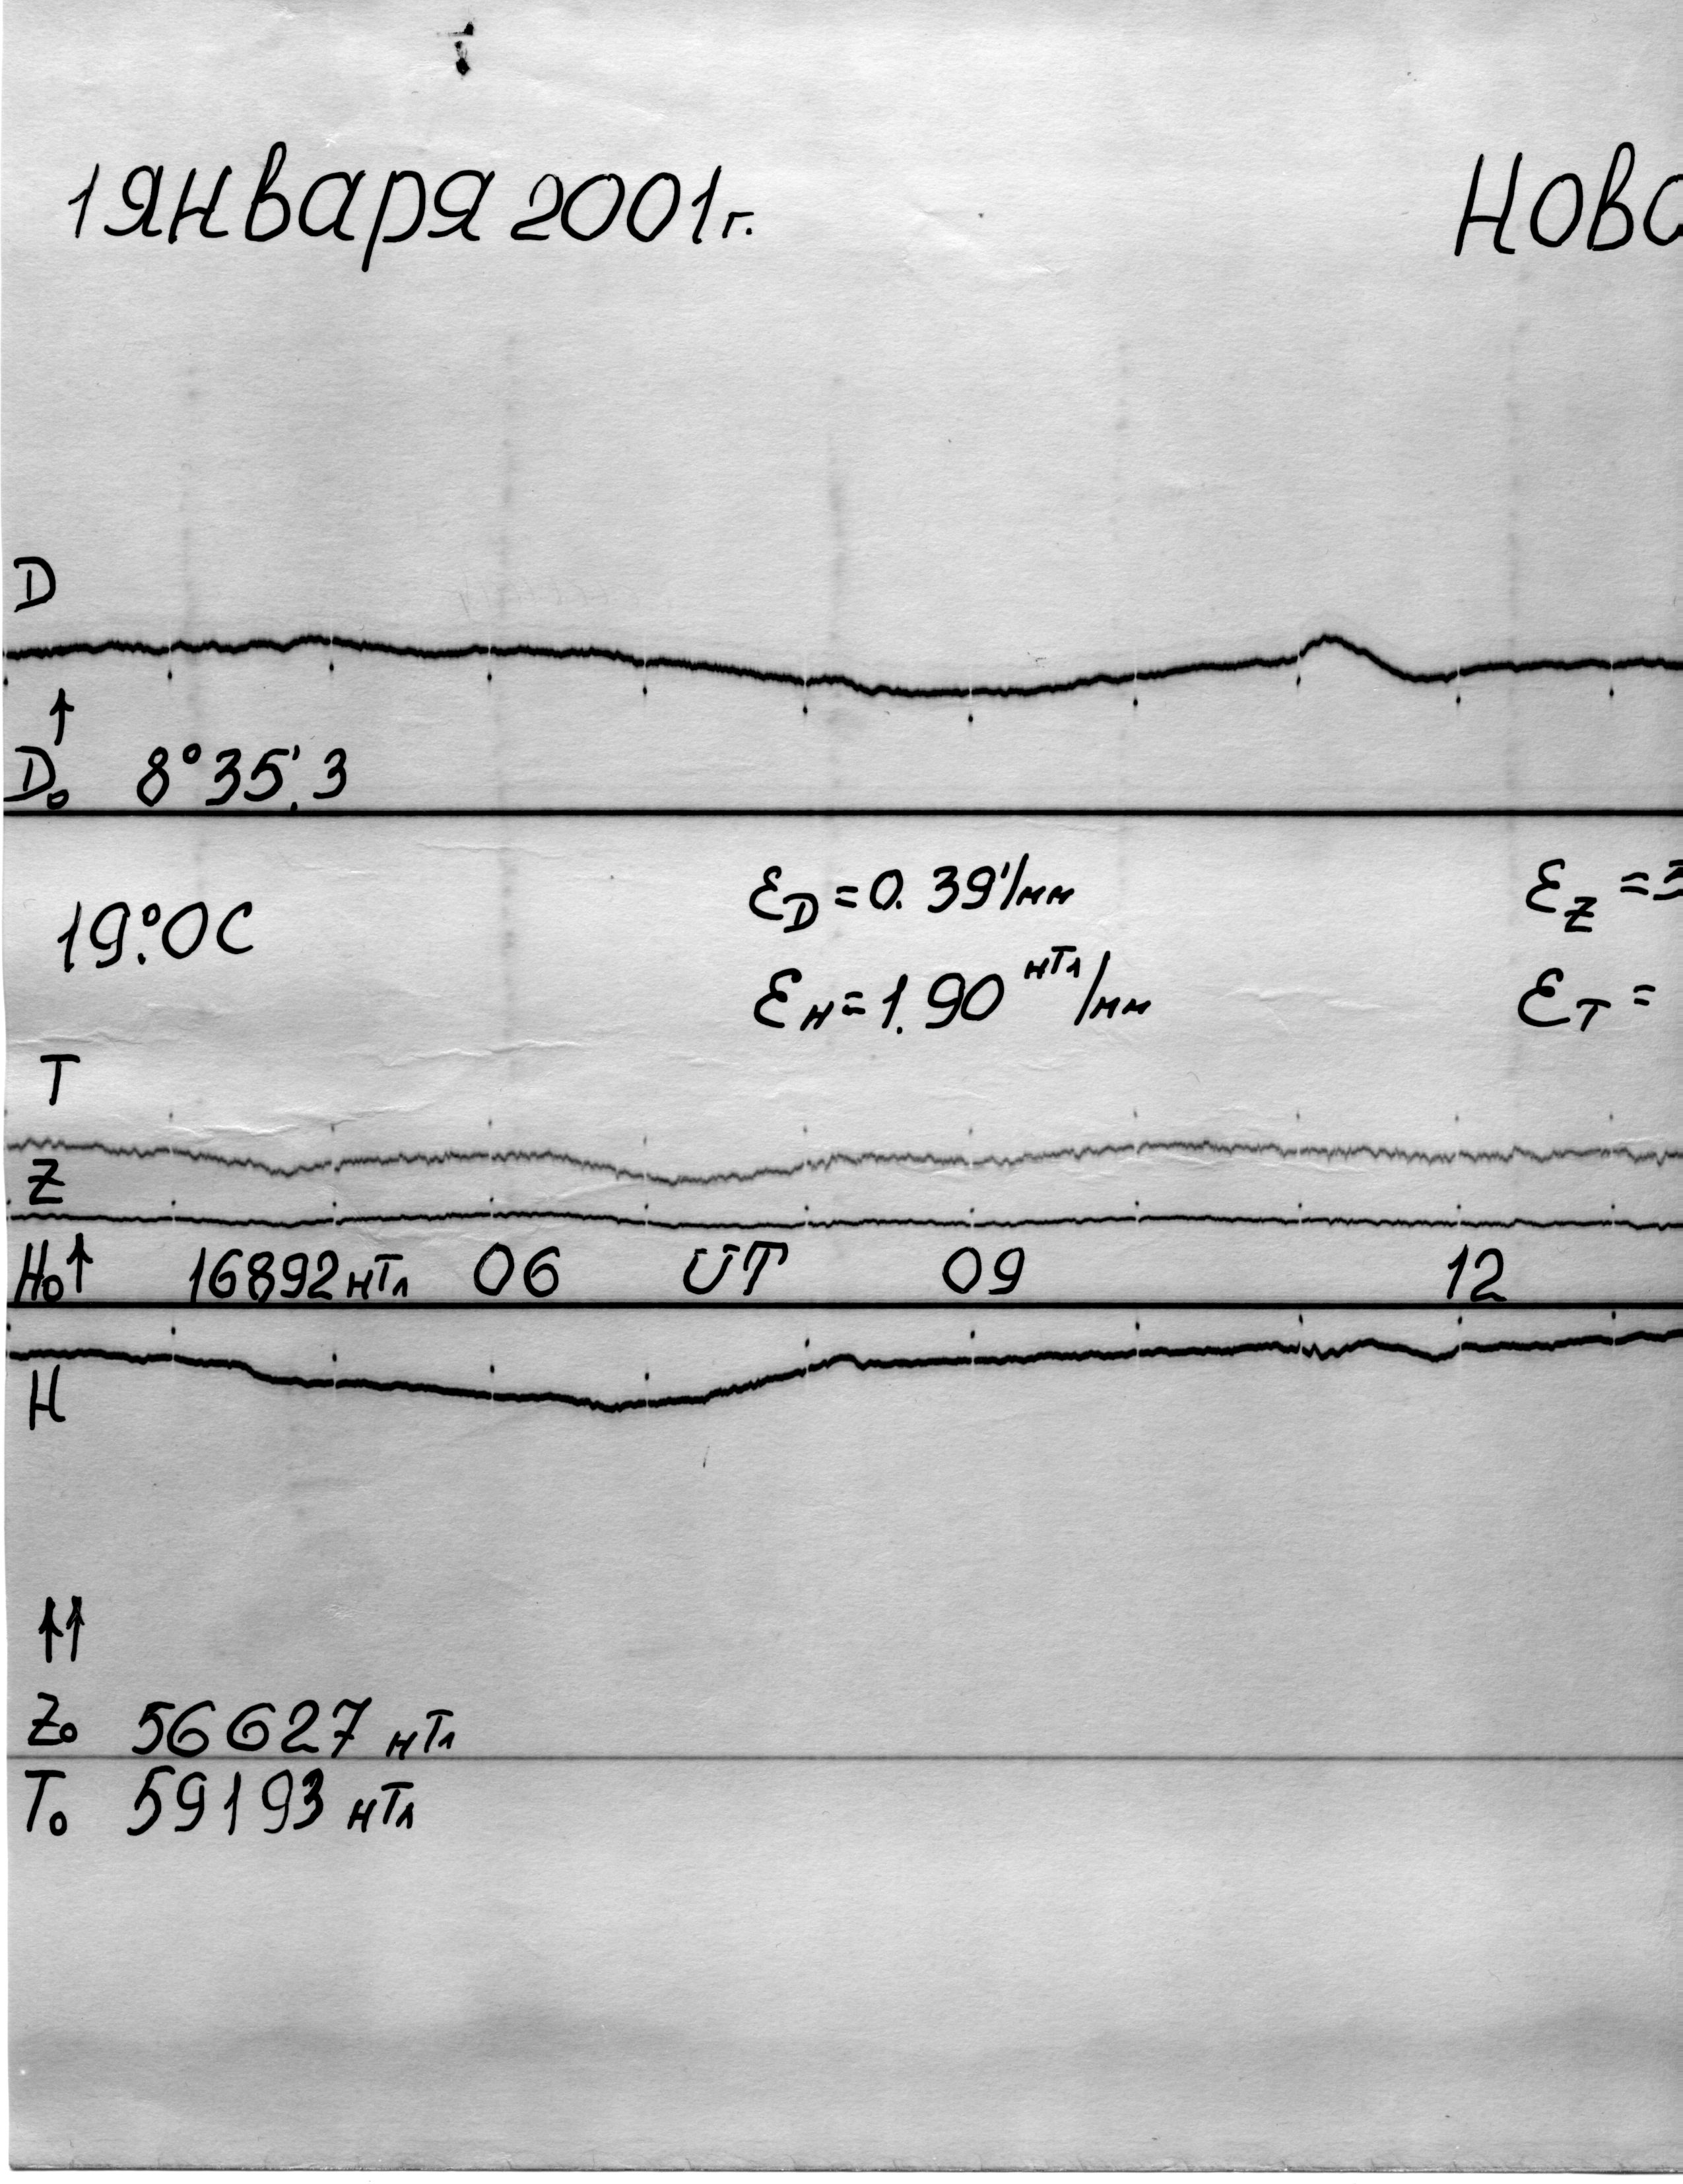 1 января 2001 г.
Ново
D
↑
D₀ 8°35'.3
εD = 0.39'/мм
εZ = 3
19°.0 C
εH = 1.90 нТл/мм
εT =
T
Z
H₀↑ 16892 нТл 06 UT 09 12
H
↑↑
Z₀ 56627 нТл
T₀ 59193 нТл